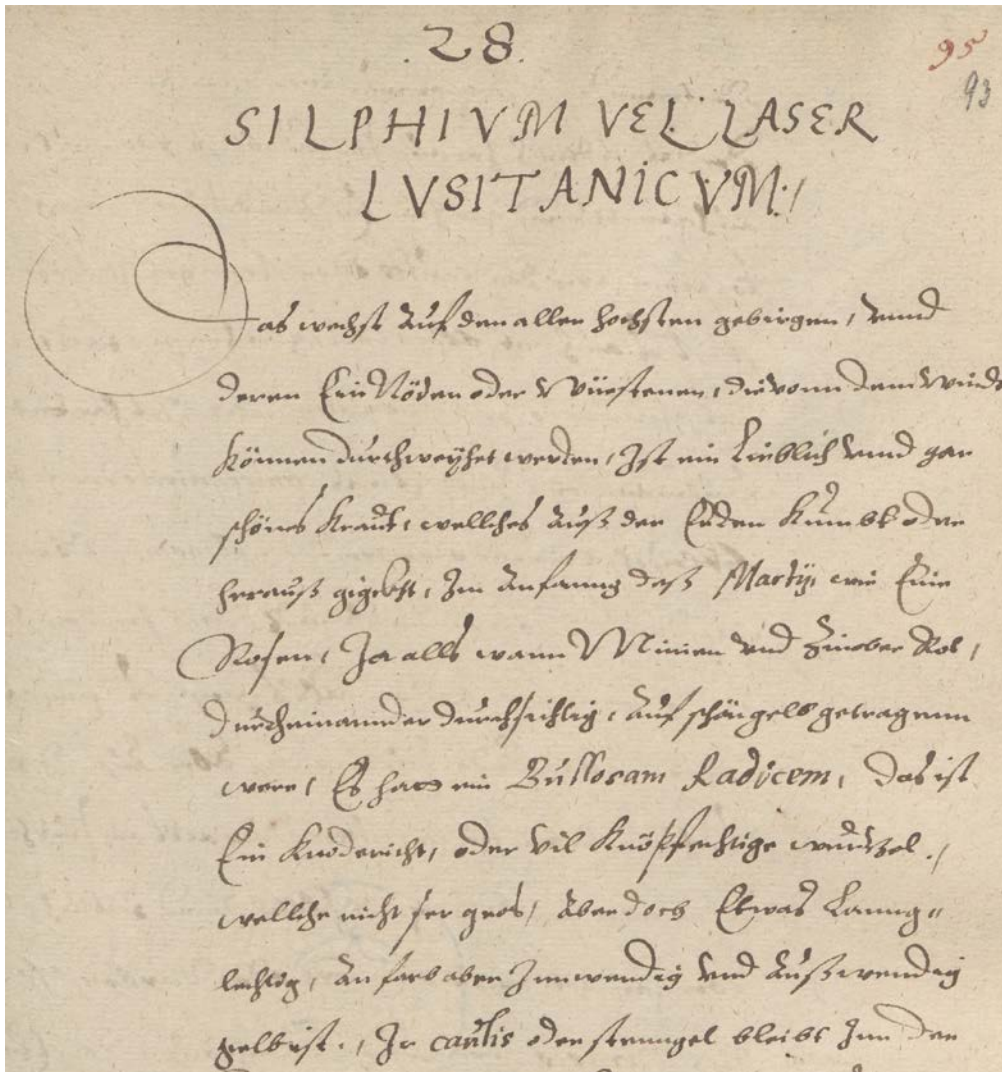 .28.
95
93
SILPHIVM VEL LASER
LVSITANICVM:/
Das wechst Auf den aller hochsten gebirgen, vnnd
deren Ein Nöden oder Wüestenen, die vonn dem Windt
können durchweyhet werden, Ist ein lieblich vnnd gar
schönes Kraut, wellches Auß der Erden Kumbt oder
herauß, Im Anfanng deß Martij, wie Eine
Rosen, Ja alls wann Minien vnd Zinober Rot,
durcheinannder durchsichtig, Auf schöngels getragenn
were, Es hatt ein Bullosam Radicem, das ist
Ein Knodericht, oder vil Knöpffechtige wurtzel./
wellche nicht ser gros, Aber doch Etwas Lanng„
lechtig, An farb aber Innwendig vnd Außwendig
gelb ist., Ir caulis oder stenngel bleibt Inn der